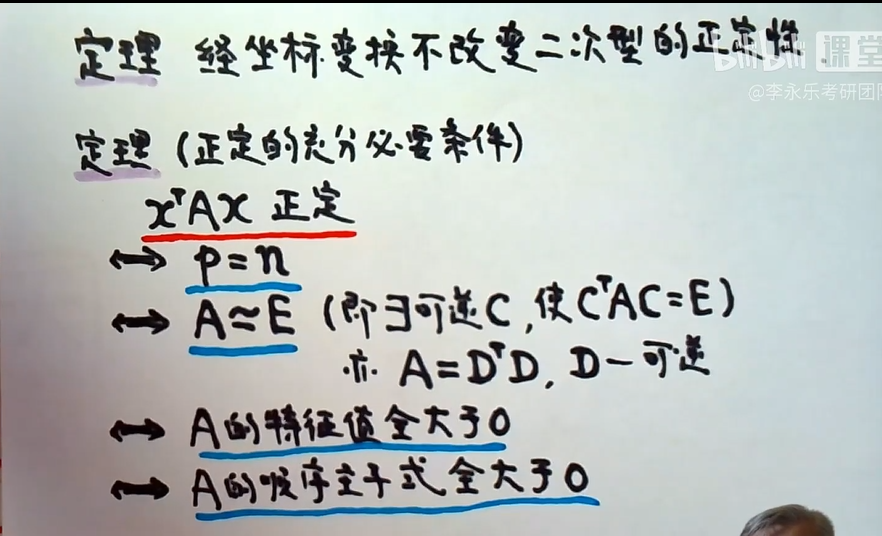 定理 经坐标变换不改变二次型的正定性.
bilibili 课堂
@李永乐考研团队
定理 (正定的充分必要条件)
xᵀAx 正定
⟷ p=n
⟷ A≃E (即∃可逆C,使CᵀAC=E)
亦 A=DᵀD, D一可逆
⟷ A的特征值全大于0
⟷ A的顺序主子式全大于0